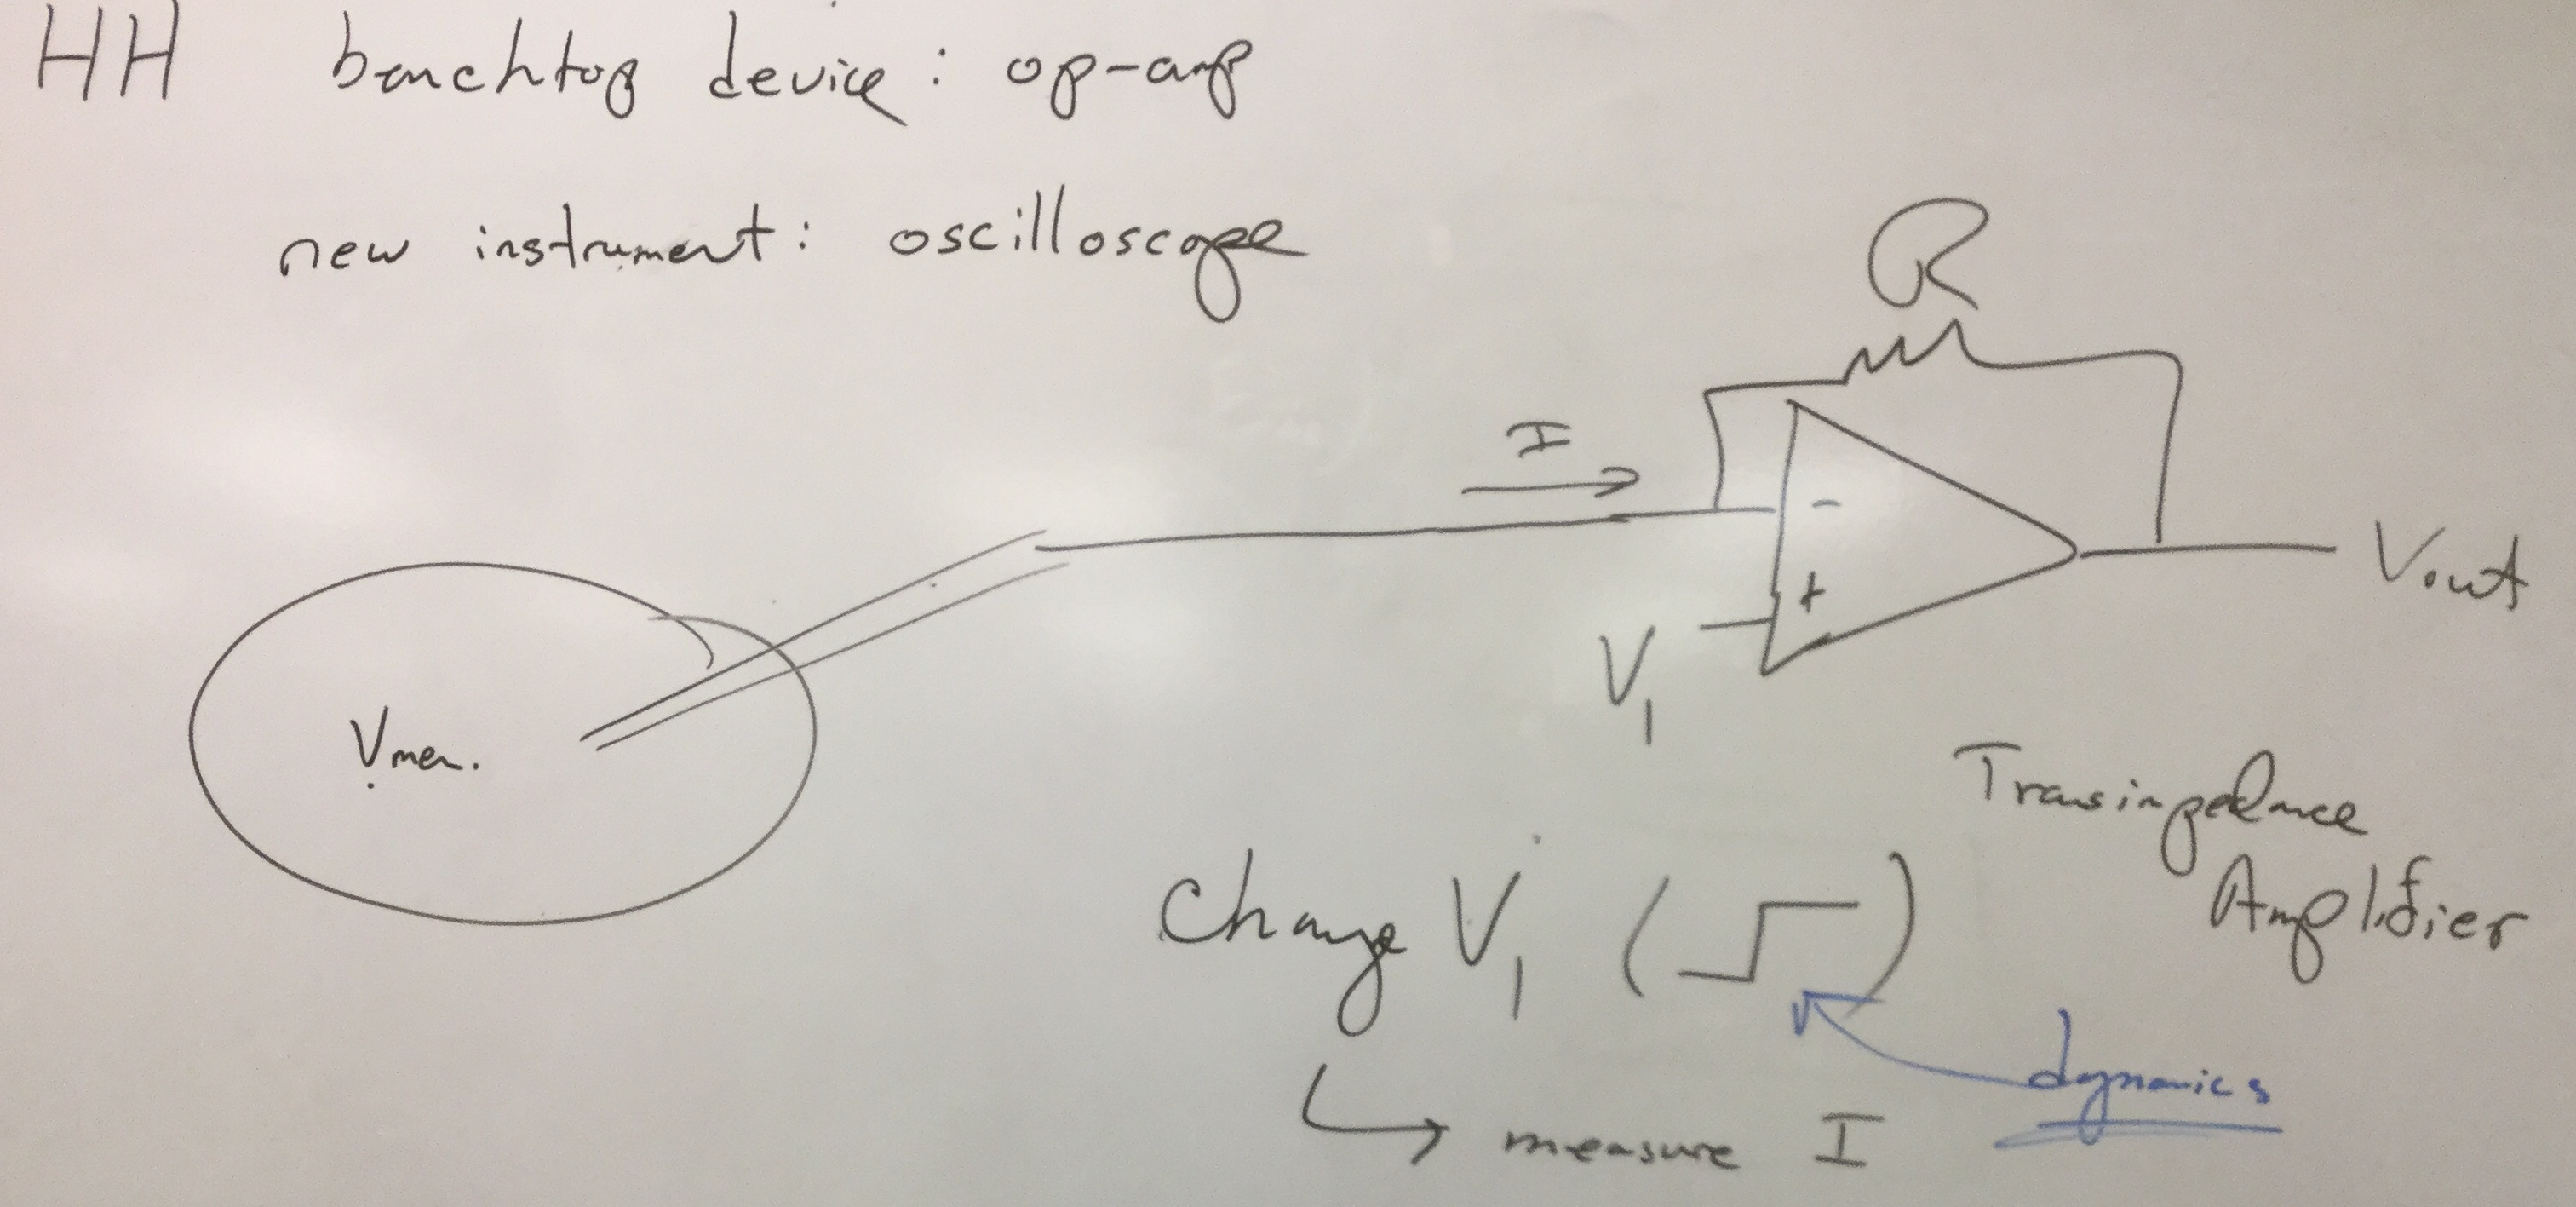 HH benchtop device: op-amp
new instrument: oscilloscope
R
I
-
+
Vout
V1
Vmem.
Transimpedance
Amplifier
Change V1 ( )
dynamics
measure I